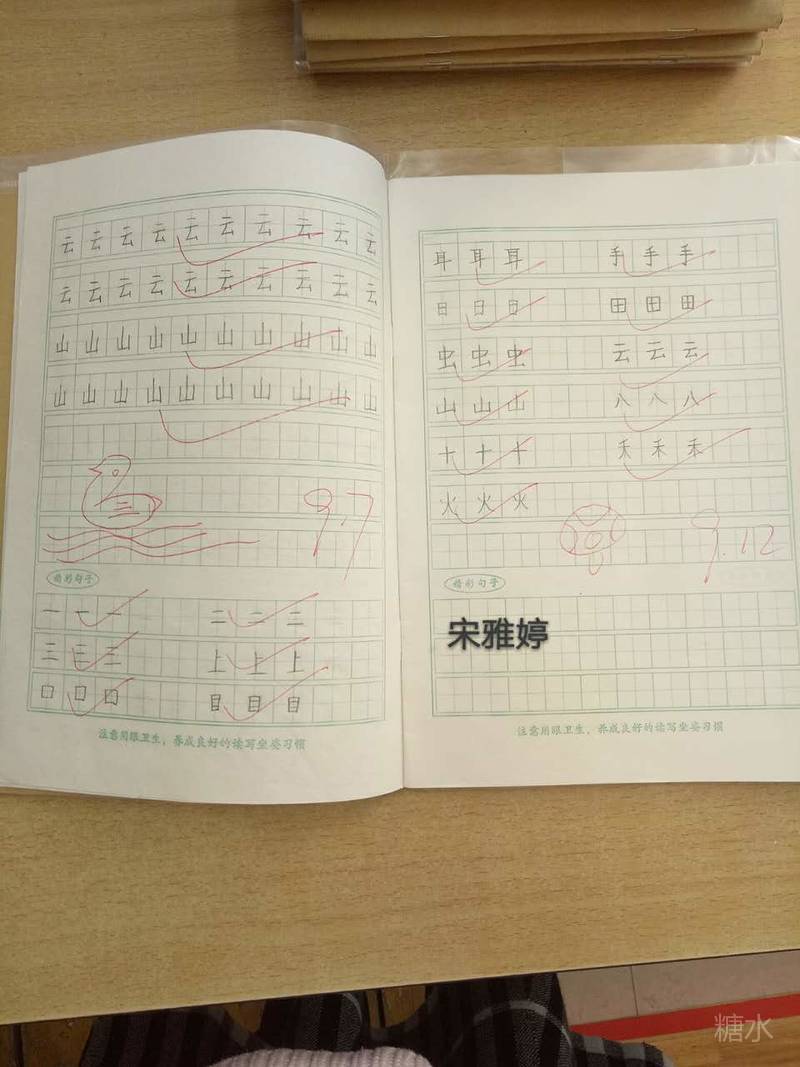 云云云云云云云云云云
云云云云云云云云云云
山山山山山山山山山山
山山山山山山山山山山
三
9.7
精彩句子
一 一 一 二 二 二
三 三 三 上 上 上
口 口 口 目 目 目
注意用眼卫生，养成良好的读写坐姿习惯
耳 耳 耳 手 手 手
日 日 日 田 田 田
虫 虫 虫 云 云 云
山 山 山 八 八 八
十 十 十 禾 禾 禾
火 火 火
9.12
精彩句子
宋雅婷
注意用眼卫生，养成良好的读写坐姿习惯
糖水